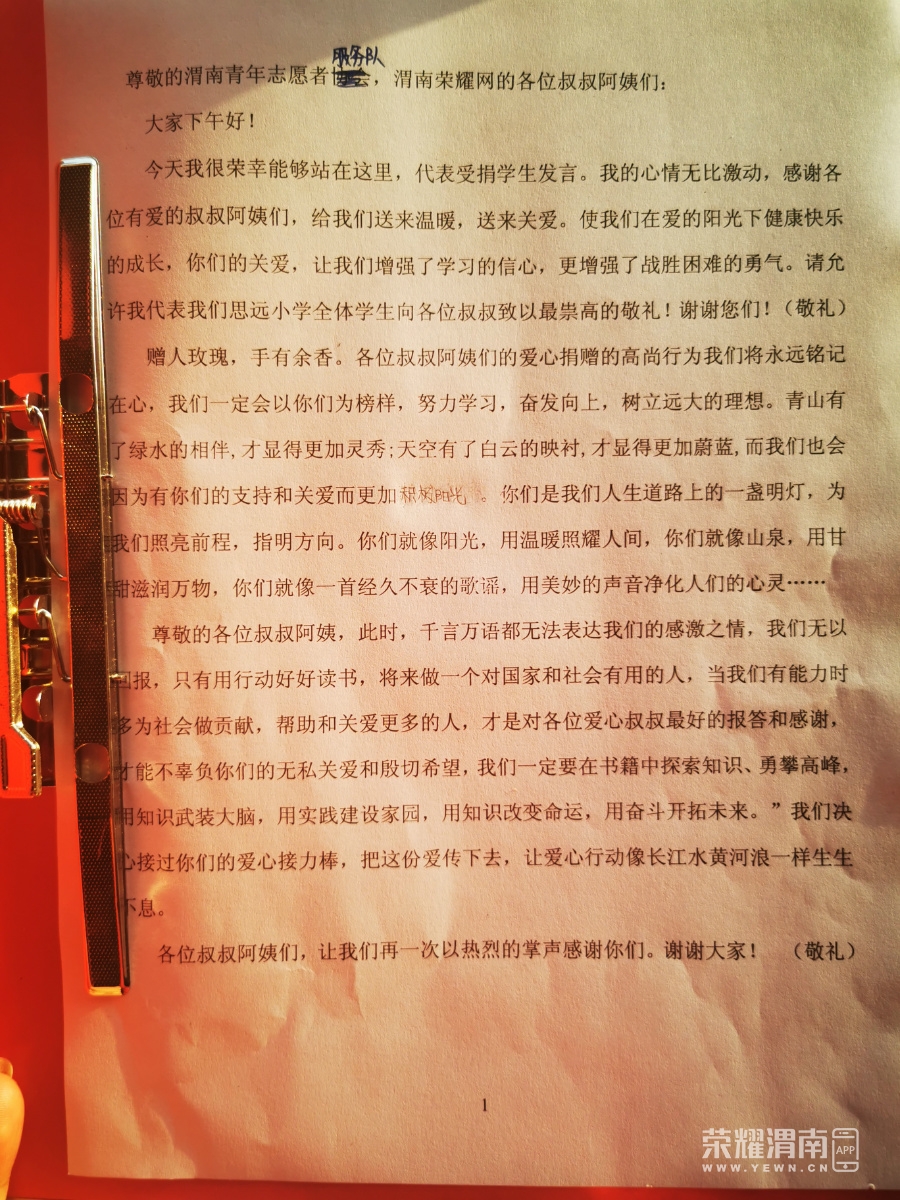 服务队
尊敬的渭南青年志愿者协会，渭南荣耀网的各位叔叔阿姨们：
大家下午好！
今天我很荣幸能够站在这里，代表受捐学生发言。我的心情无比激动，感谢各
位有爱的叔叔阿姨们，给我们送来温暖，送来关爱。使我们在爱的阳光下健康快乐
的成长，你们的关爱，让我们增强了学习的信心，更增强了战胜困难的勇气。请允
许我代表我们思远小学全体学生向各位叔叔致以最崇高的敬礼！谢谢您们！（敬礼）
赠人玫瑰，手有余香。各位叔叔阿姨们的爱心捐赠的高尚行为我们将永远铭记
在心，我们一定会以你们为榜样，努力学习，奋发向上，树立远大的理想。青山有
了绿水的相伴,才显得更加灵秀;天空有了白云的映衬,才显得更加蔚蓝,而我们也会
因为有你们的支持和关爱而更加 。你们是我们人生道路上的一盏明灯，为
我们照亮前程，指明方向。你们就像阳光，用温暖照耀人间，你们就像山泉，用甘
甜滋润万物，你们就像一首经久不衰的歌谣，用美妙的声音净化人们的心灵……
尊敬的各位叔叔阿姨，此时，千言万语都无法表达我们的感激之情，我们无以
回报，只有用行动好好读书，将来做一个对国家和社会有用的人，当我们有能力时
多为社会做贡献，帮助和关爱更多的人，才是对各位爱心叔叔最好的报答和感谢，
才能不辜负你们的无私关爱和殷切希望，我们一定要在书籍中探索知识、勇攀高峰，
用知识武装大脑，用实践建设家园，用知识改变命运，用奋斗开拓未来。”我们决
心接过你们的爱心接力棒，把这份爱传下去，让爱心行动像长江水黄河浪一样生生
不息。
各位叔叔阿姨们，让我们再一次以热烈的掌声感谢你们。谢谢大家！ （敬礼）
1
荣耀渭南 APP
WWW.YEWN.CN